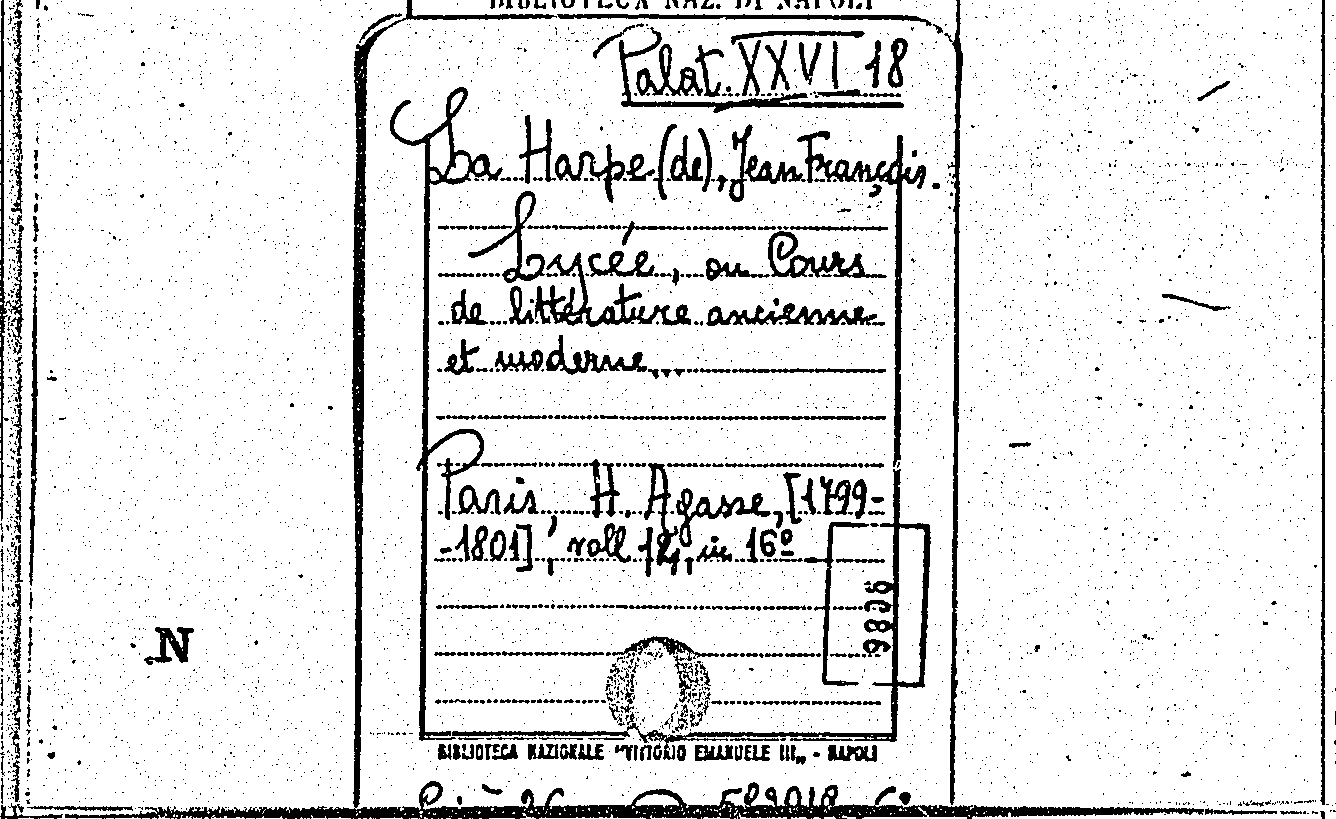 BIBLIOTECA NAZ. DI NAPOLI
Palat. XXVI 18
La Harpe (de), Jean François.
Lycée, ou Cours
de littérature ancienne
et moderne...
Paris, H. Agasse, [1799-
-1801], voll 12, in 16º
N
BIBLIOTECA NAZIONALE "VITTORIO EMANUELE III„ - NAPOLI